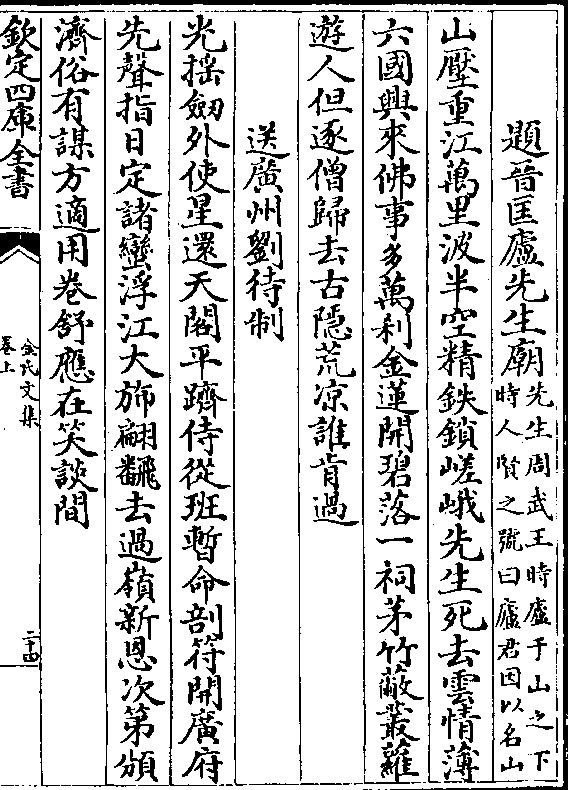 題晉匡廬先生廟先生周武王時廬于山之下
時人賢之號曰廬君因以名山
山壓重江萬里波半空精鉄鎖嵯峨先生死去雲情薄
六國興來佛事多萬利金蓮開碧落一祠茅竹蔽叢蘿
遊人但逐僧歸去古隱荒凉誰肯過
送廣州劉待制
光揺劒外使星還天閣平躋侍從班暫命剖符開廣府
先聲指日定諸蠻浮江大斾翩飜去過嶺新恩次第頒
濟俗有謀方適用卷舒應在笑談間
欽定四庫全書
金氏文集
卷上
二十四